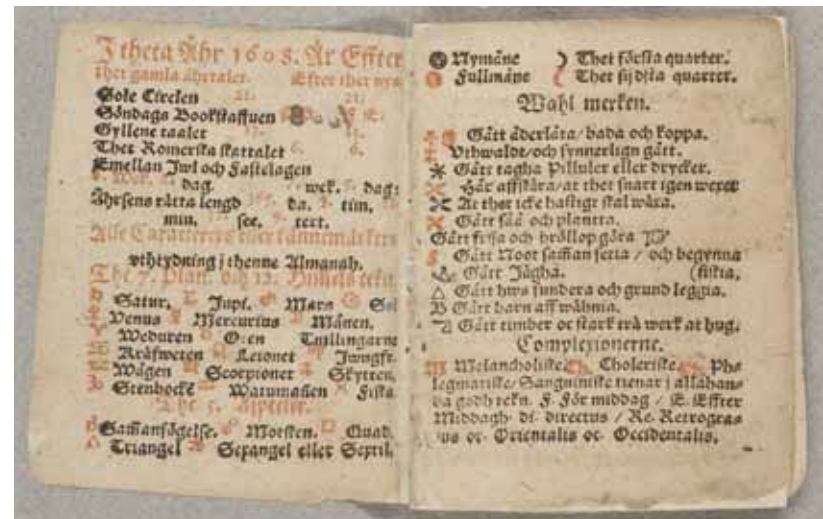 I theta Åhr 1608. Är Effter
thet gamla åhrtalet. Efter thet nya
Sole Circlen 21. 21.
Söndags Bookstaffuen
Gyllene taalet 13. 13.
Thet Romerska skattalet 6. 6.
Emellan Jwl och Fastelagen
dag. wek. dag:
Åhrsens rätta lengd 365. da. tim.
min. sec. tert.
Alle Caracterers eller kännemärkers
vthtydning j thenne Almanah.
The 7. Plan. och 12. Himels tekn.
Satur. Jupi. Mars Sol
Venus Mercurius Månen.
Weduren Oxen Tuillingarne
Kräfweten Leionet Jwngfr.
Wågen Scorpionet Skytten.
Stenbocke Watumañen Fiska
The 5. Aspecter.
Samañfögelse. Motsten. Quad.
Triangel Sexangel eller Sextil.
Nymåne ☽ Thet första quarter.
Fullmåne ☾ Thet sijdsta quarter.
Wahl merken.
Gått åderlåta/ bada och koppa.
Vthwaldt/och synnerlign gått.
Gått tagha Pilluler eller drycker.
Hår affskära/at thet snart igen wexer
At thet icke hastigt skal wäxa.
Gått såå och plantta.
Gått frija och bröllop göra
Gått Noot samañ setia / och begynna
Gått Jägha. (fiskia.
△ Gått hws fundera och grund leggia.
Gått barn aff wåhnia.
Gått timber oc stark trå werk at hug.
Complexionerne.
Melancholiske. Choleriske. Phs
legmatiske/Sanguiniske tienar j allahan-
da godh tekn. F. För middag / E. Effter
Middagh. di. directus / Re. Retrogra-
us or. Orientalis oc. Occidentalis.